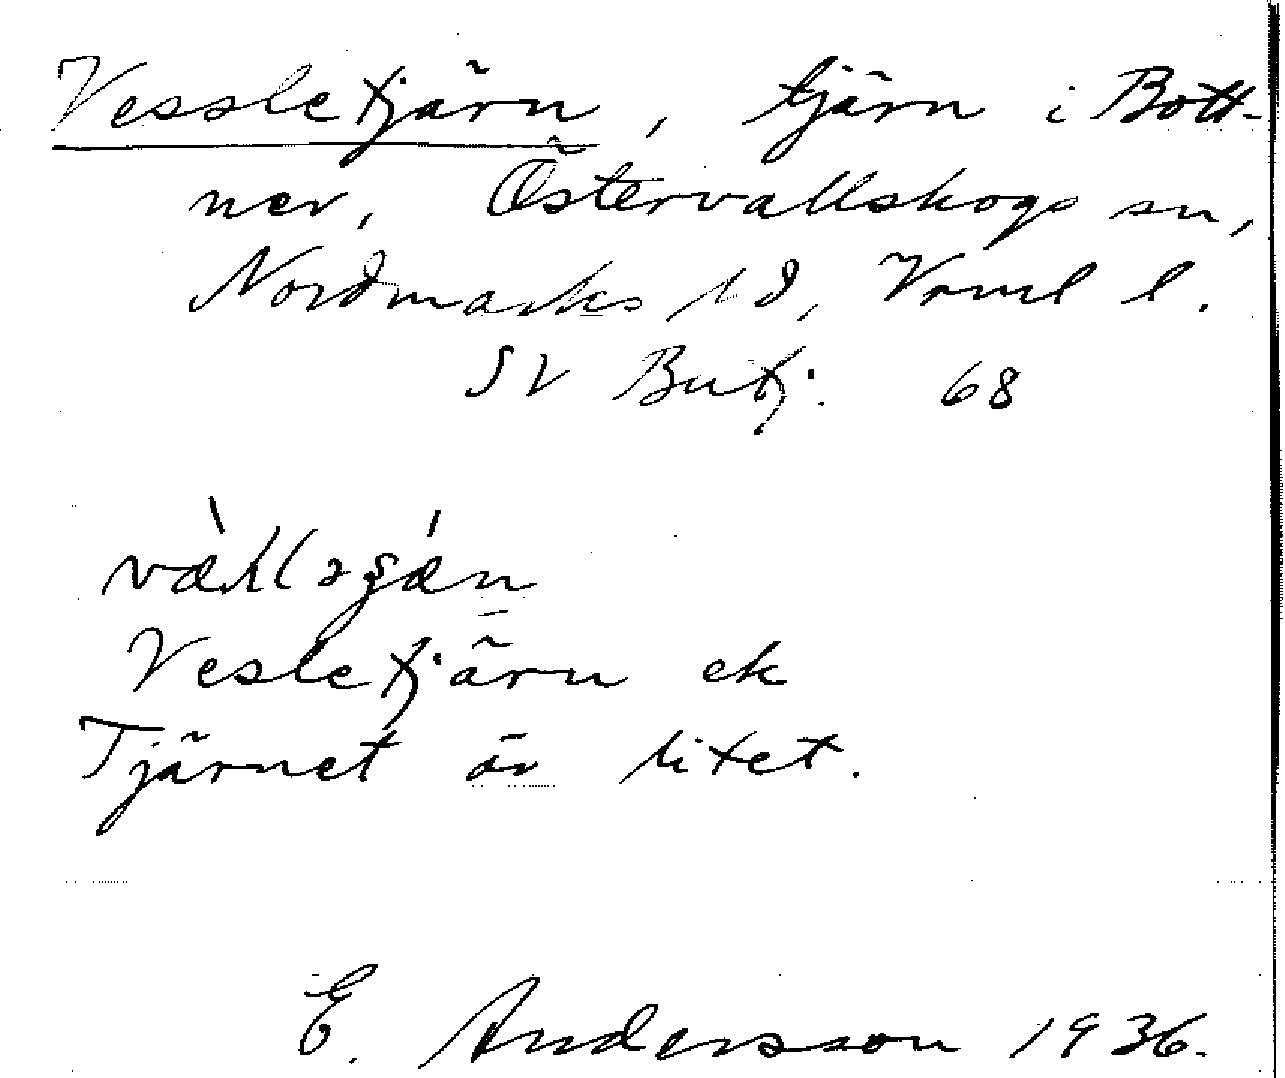 Vessletjärn, tjärn i Bott-
ner, Östervallskogs sn,
Nordmarks hd, Vrml l.
SV Butj. 68
Vesletjärn ek
Tjärnet är litet.
E. Andersson 1936.